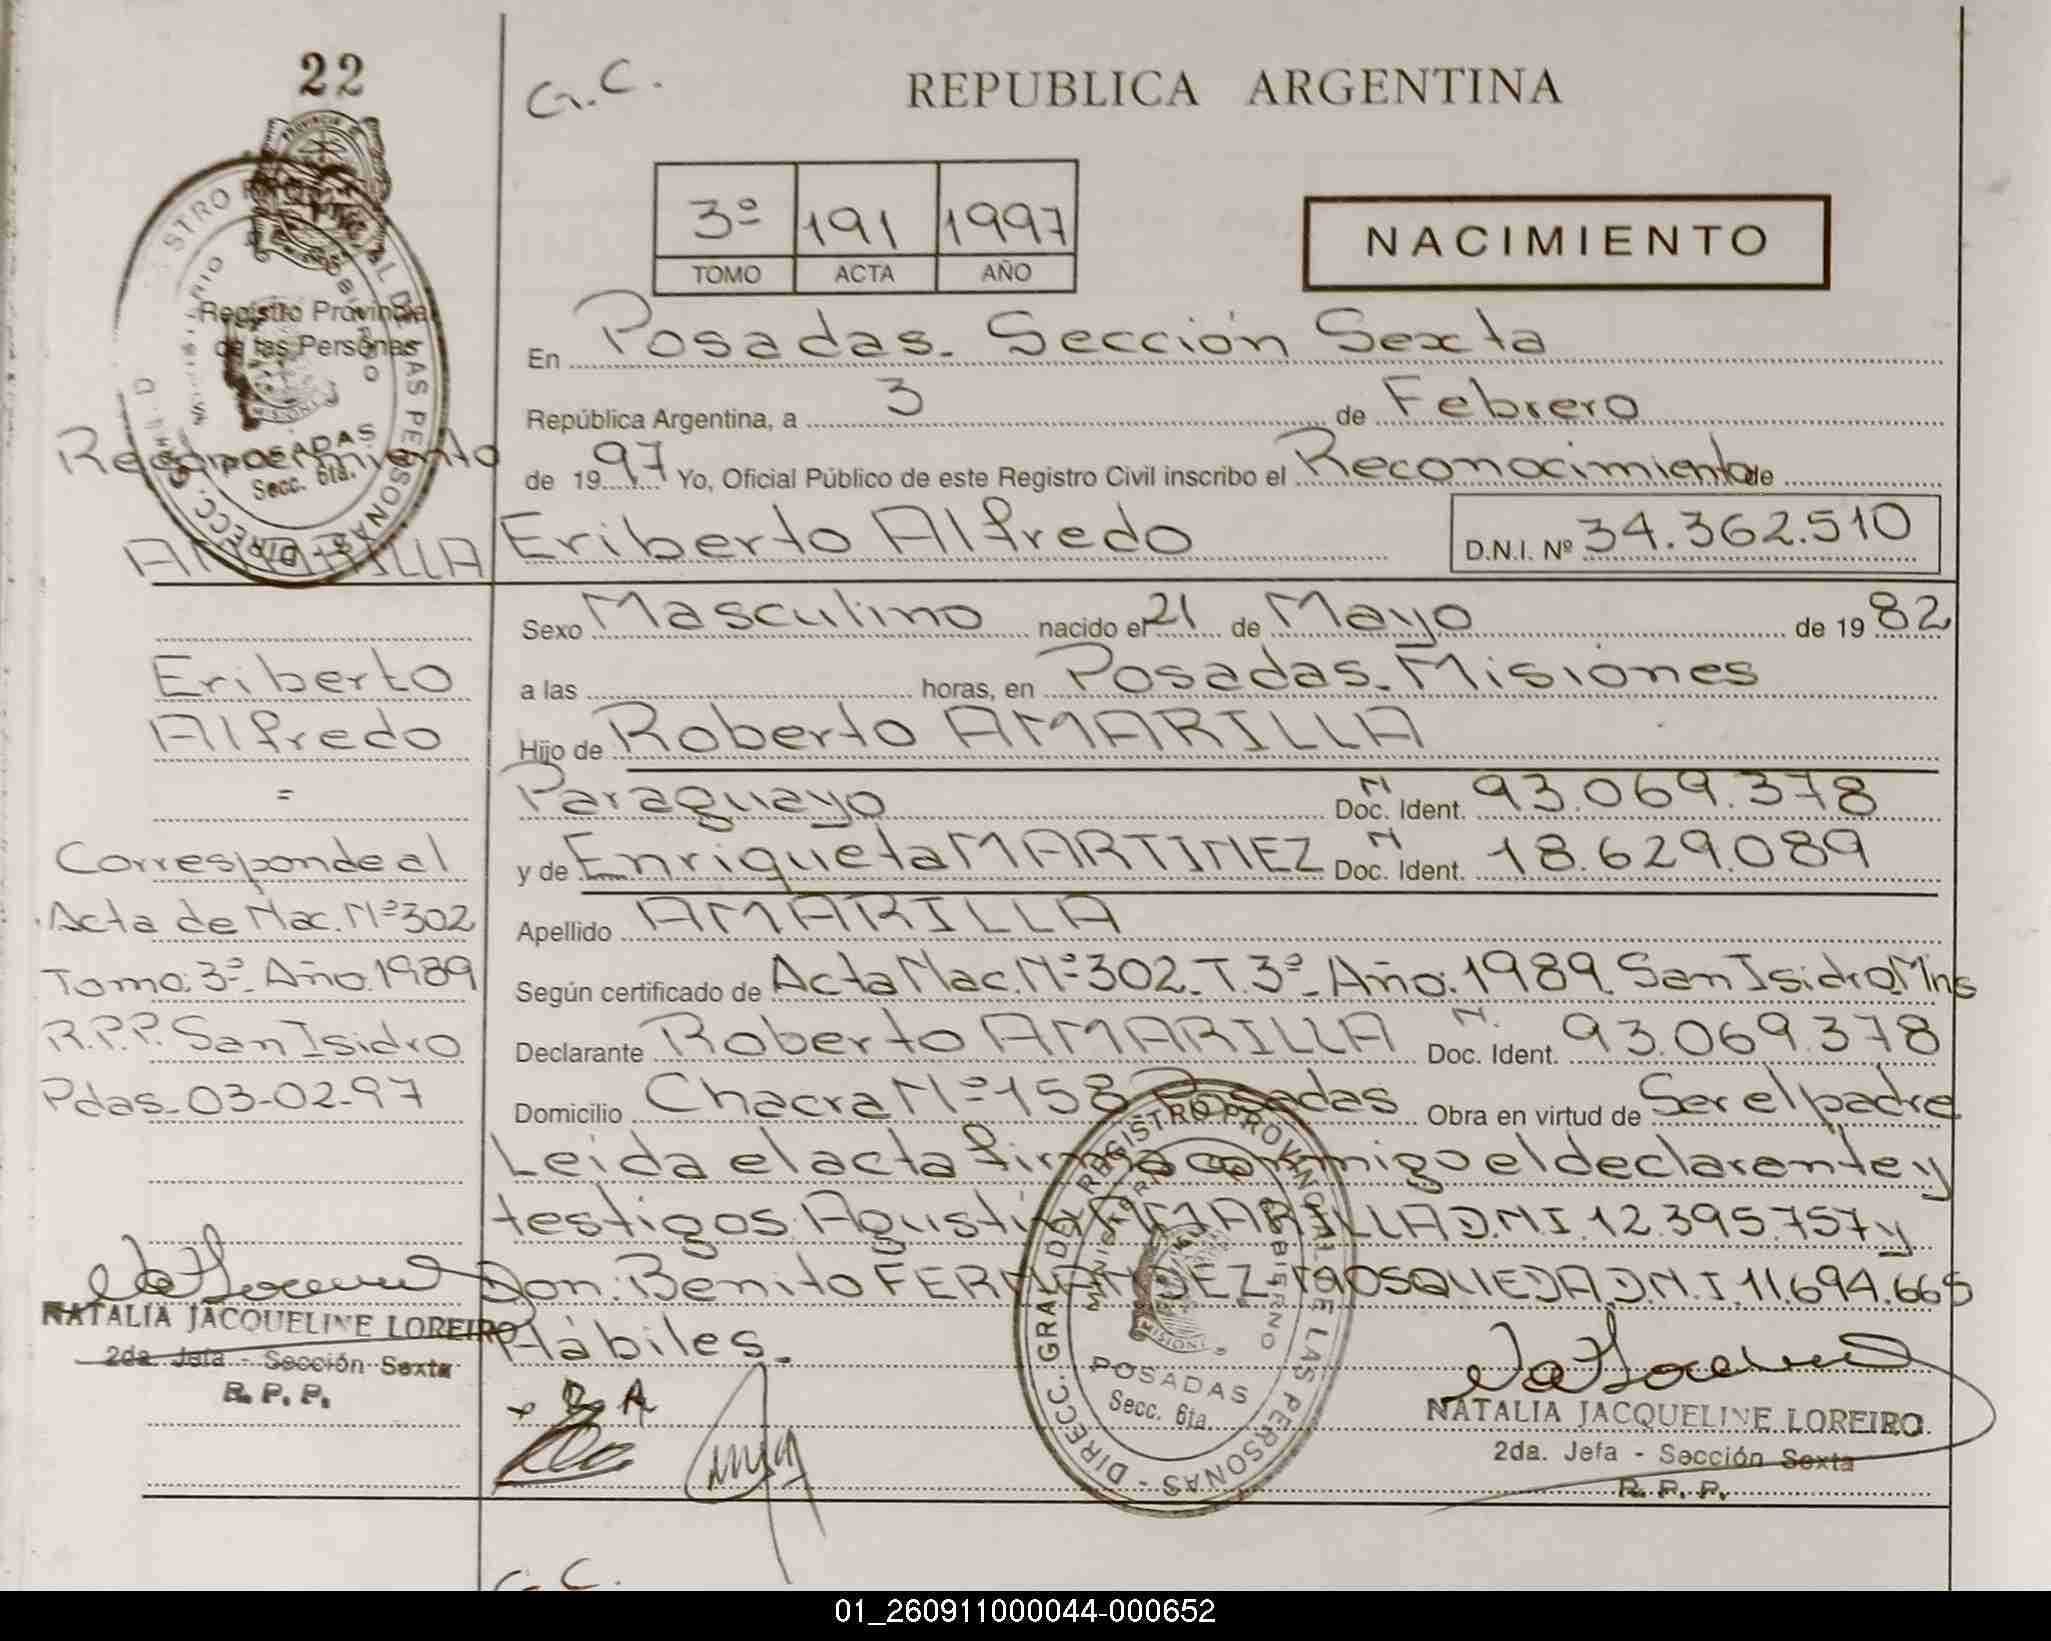 22
G.C.
REPUBLICA ARGENTINA
3º 191 1997
TOMO ACTA AÑO
NACIMIENTO
Registro Provincial
de las Personas
POSADAS
Secc. 6ta.
En Posadas. Sección Sexta
República Argentina, a 3 de Febrero
de 1997 Yo, Oficial Público de este Registro Civil inscribo el Reconocimiento de
Eriberto Alfredo D.N.I. Nº 34.362.510
Sexo Masculino nacido el 21 de Mayo de 1982
a las horas, en Posadas. Misiones
Hijo de Roberto AMARILLA
Paraguayo Doc. Ident. N 93.069.378
y de Enriqueta MARTINEZ Doc. Ident. N 18.629.089
Apellido AMARILLA
Según certificado de Acta Nac. Nº 302. T. 3º. Año. 1989. San Isidro. Mns
Declarante Roberto AMARILLA Doc. Ident. N. 93.069.378
Domicilio Chacra Nº 158 Posadas Obra en virtud de Ser el padre
Leida el acta firma conmigo el declarante y
testigos: Agustin AMARILLA D.N.I. 12.395.757 y
Don: Benito FERNANDEZ MOSQUEDA. D.N.I. 11.694.665
Hábiles.
Reconocimiento
AMARILLA
Eriberto
Alfredo
=
Corresponde al
Acta de Nac. Nº 302
Tomo: 3º. Año. 1989
R.P.P. San Isidro
Pdas. 03-02-97
NATALIA JACQUELINE LOREIRO
2da. Jefa - Sección Sexta
R. P. P.
R A
DIRECC. GRAL DEL REGISTRO PROVINCIAL DE LAS PERSONAS -
MINISTERIO GOBIERNO
MISIONES
POSADAS
Secc. 6ta.
NATALIA JACQUELINE LOREIRO
2da. Jefa - Sección Sexta
R. P. P.
G. C.
01_260911000044-000652